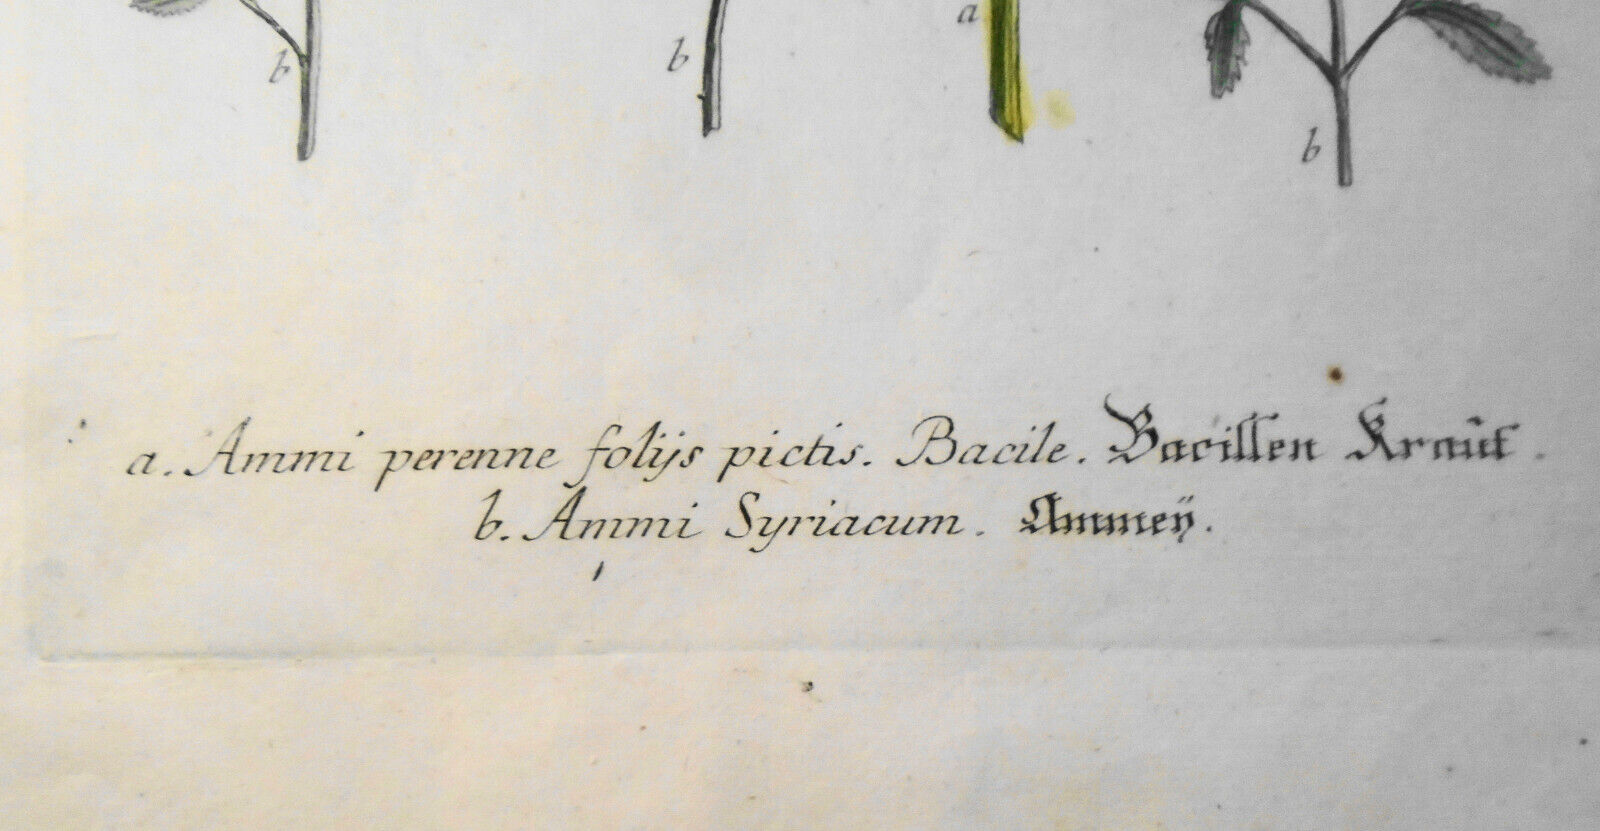 b
b
a
b
a. Ammi perenne folijs pictis. Bacile. Bacillen Kraut.
b. Ammi Syriacum. Ammeÿ.